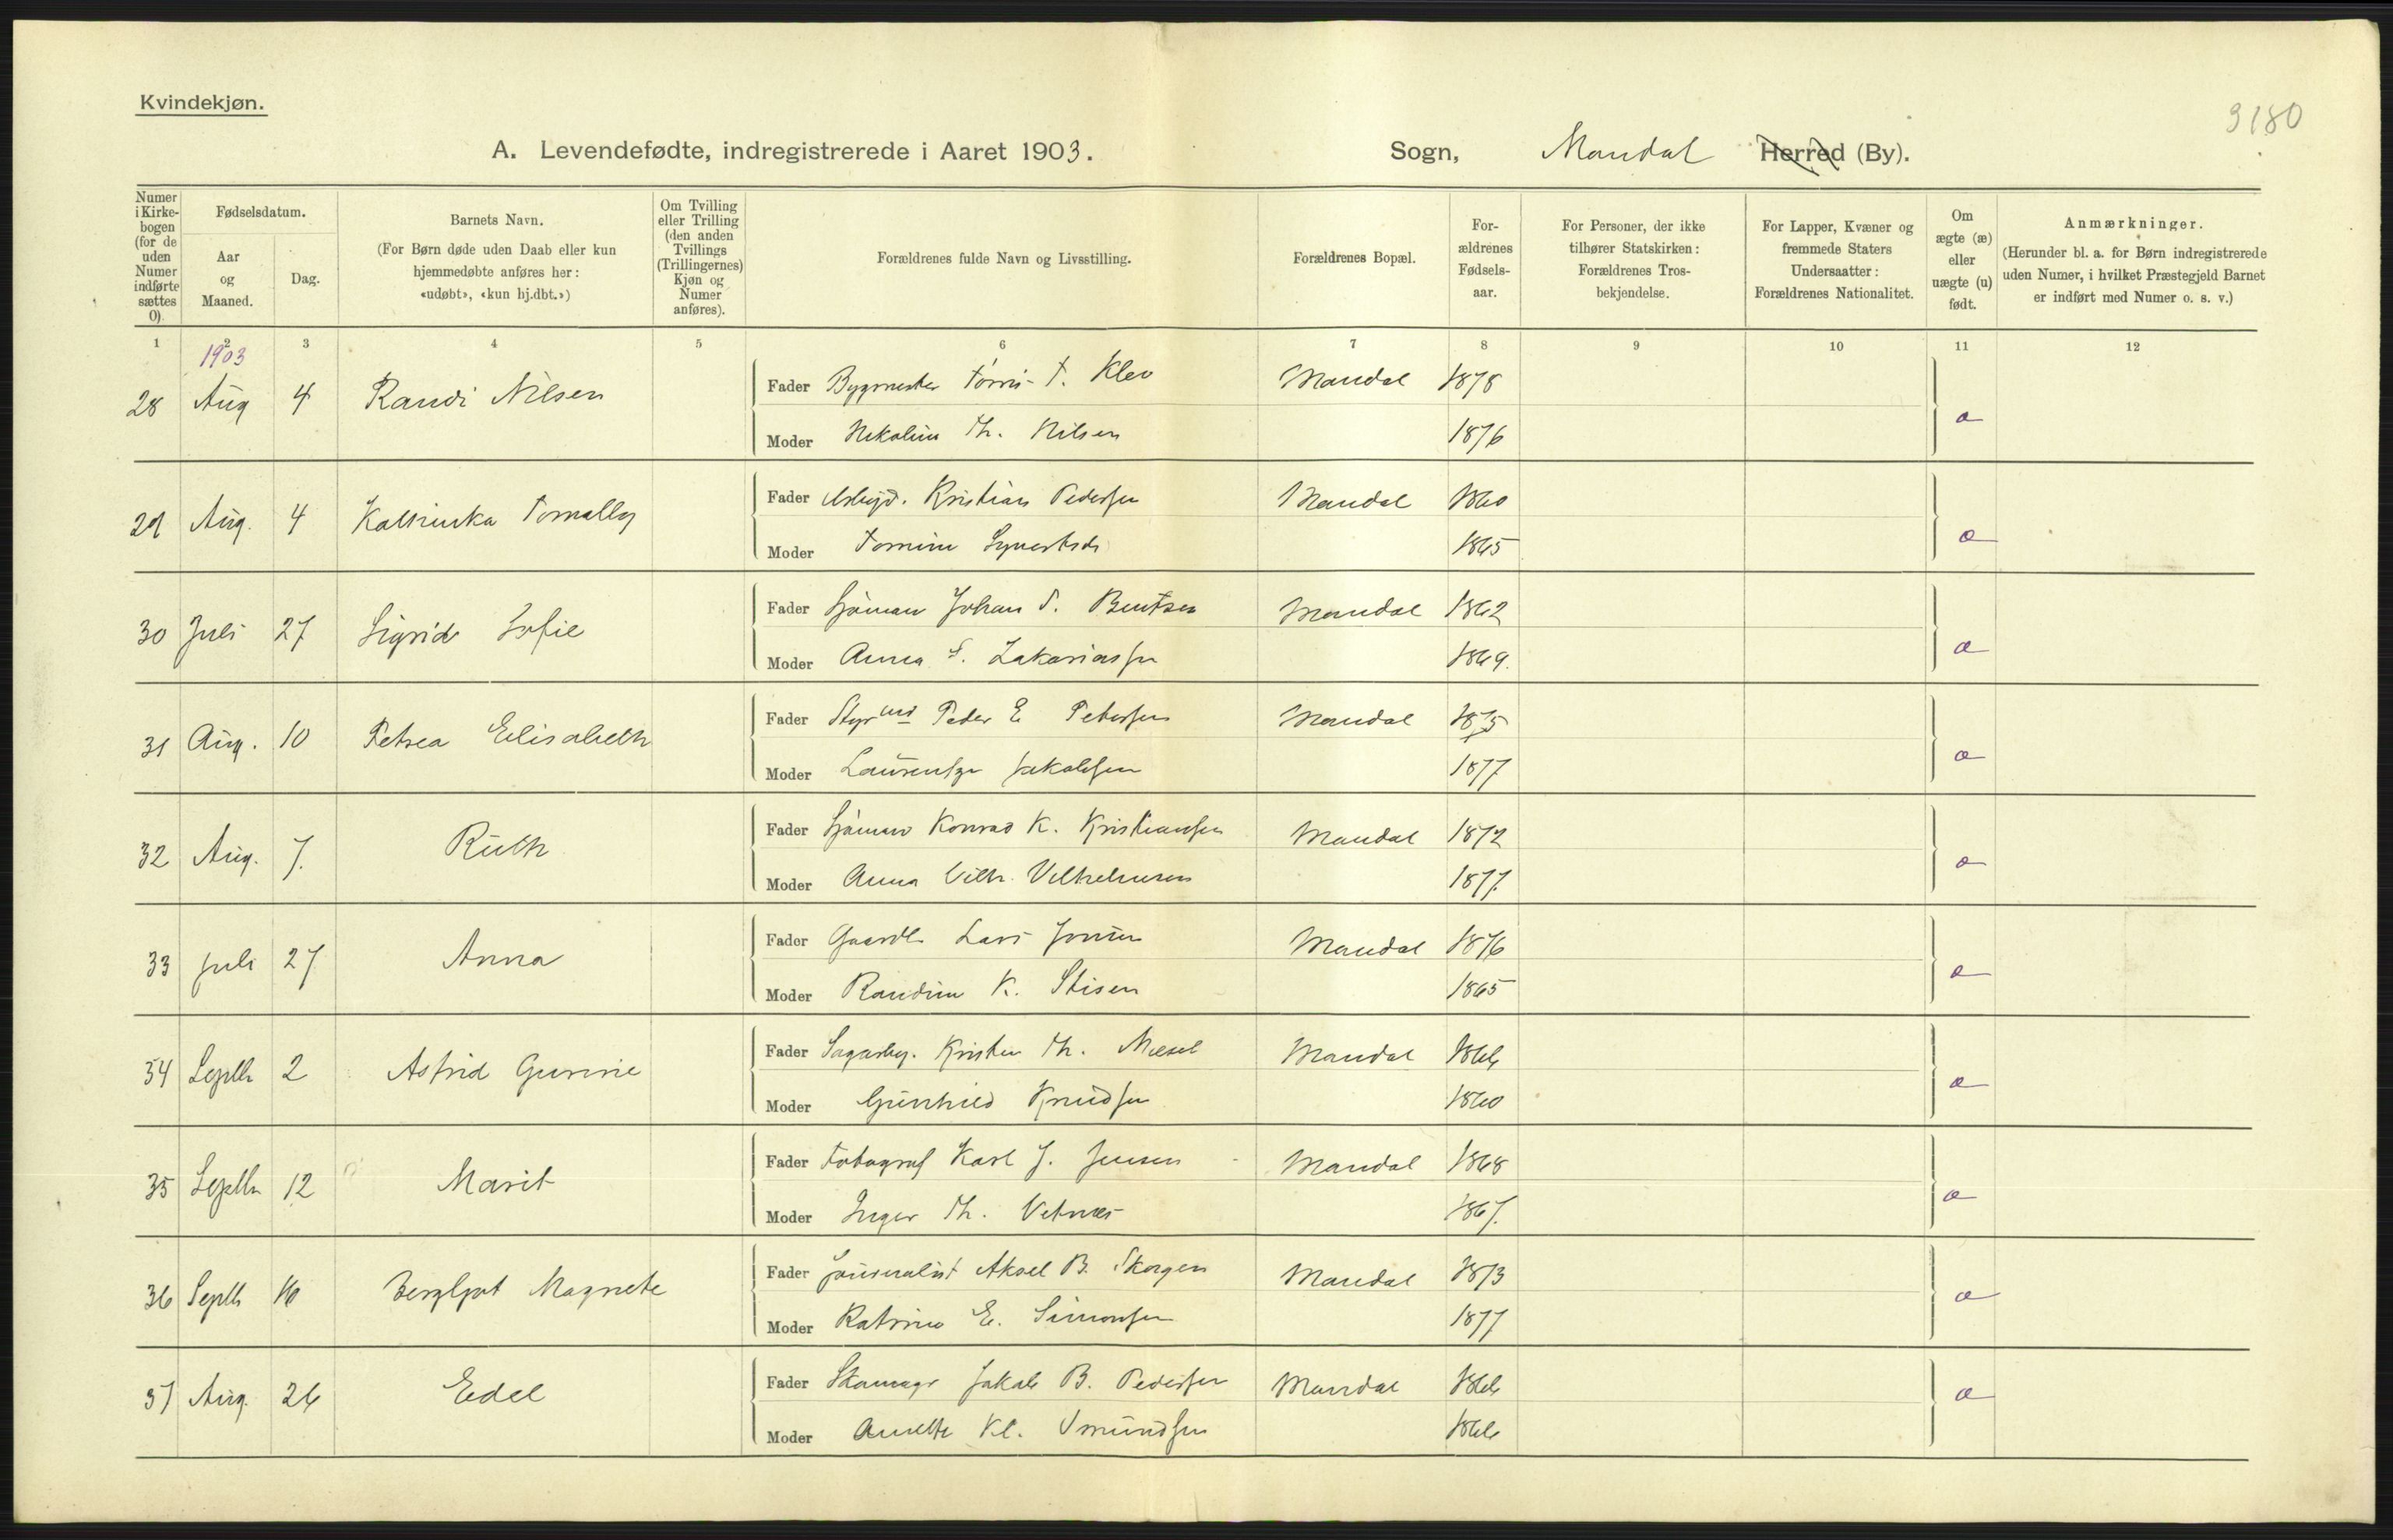 Kvindekjøn.
3180
A. Levendefødte, indregistrerede i Aaret 1903. Sogn, Mandal Herred (By).
Numer i Kirkebogen (for de uden Numer indførte sættes 0).
Fødselsdatum.
Aar og Maaned.
Dag.
Barnets Navn.
(For Børn døde uden Daab eller kun hjemmedøbte anføres her: «udøbt», «kun hj.dbt.»)
Om Tvilling eller Trilling (den anden Tvillings (Trillingernes) Kjøn og Numer anføres).
Forældrenes fulde Navn og Livsstilling.
Forældrenes Bopæl.
Forældrenes Fødselsaar.
For Personer, der ikke tilhører Statskirken: Forældrenes Trosbekjendelse.
For Lapper, Kvæner og fremmede Staters Undersaatter: Forældrenes Nationalitet.
Om ægte (æ) eller uægte (u) født.
Anmærkninger.
(Herunder bl. a. for Børn indregistrerede uden Numer, i hvilket Præstegjeld Barnet er indført med Numer o. s. v.)
1 2 3 4 5 6 7 8 9 10 11 12
1903
28 Aug 4 Randi Nilsen Fader T. Klev Mandal 1878
Moder Th. Nilsen 1876
æ
29 Aug. 4 Kathinka Tomally Fader Arbejd. Kristian Pedersen Mandal 1860
Moder Tomine 1865
æ
30 Juli 27 Sigrid Sofie Fader Sjöman Johan S. Bentsen Mandal 1862
Moder Anna S. Zakariassen 1869.
æ
31 Aug. 10 Petrea Elisabeth Fader Styrmd Peder E Petersen Mandal 1875
Moder Jakobsen 1877
æ
32 Aug. 7. Ruth Fader Sjöman Konrad K. Kristiansen Mandal 1872
Moder Anna Vilh. Vilhelmsen 1877.
æ
33 Juli 27 Anna Fader Gaardb Lars Mandal 1876
Moder Randine K. Stisen 1865
æ
34 Septb 2 Astrid Gurine Fader Sagarbej. Kristen Th. Mandal 1866
Moder Gunhild Knudsen 1860
æ
35 Septbr 12 Marit Fader Fotograf Karl J. Jensen Mandal 1868
Moder Inger Th. Vetnes 1867.
æ
36 Septb 16 Bergljot Magnete Fader Journalist Aksel B. Skorgen Mandal 1873
Moder Katrine E. Simonsen 1877
æ
37 Aug. 26 Edel Fader Skomagr Jakob B. Pedersen Mandal 1866
Moder Anette Kl. 1866
æ